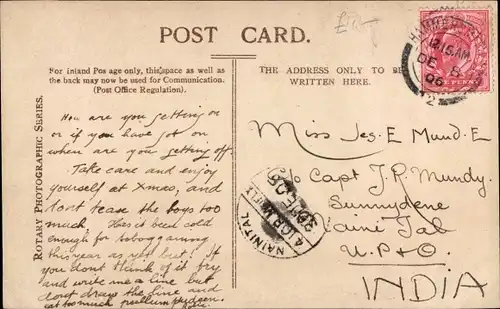 POST CARD.
For inland Postage only, this space as well as
the back may now be used for Communication.
(Post Office Regulation).
THE ADDRESS ONLY TO BE
WRITTEN HERE.
ROTARY PHOTOGRAPHIC SERIES.
How are you getting on
or if you have got on
when are you getting off.
Take care and enjoy
yourself at Xmas, and
dont tease the boys too
much. Has it been cold
enough for tobogganning
this year as yet but! If
you dont think of it try
and write me a line but
dont draw the line and
eat too much
Miss Jes. E Mund. E
c/o Capt J. R. Mundy.
Sunnydene
Naini Tal
U.P. & O.
INDIA
12.15 AM
DE 8
06
2
NAINITAL